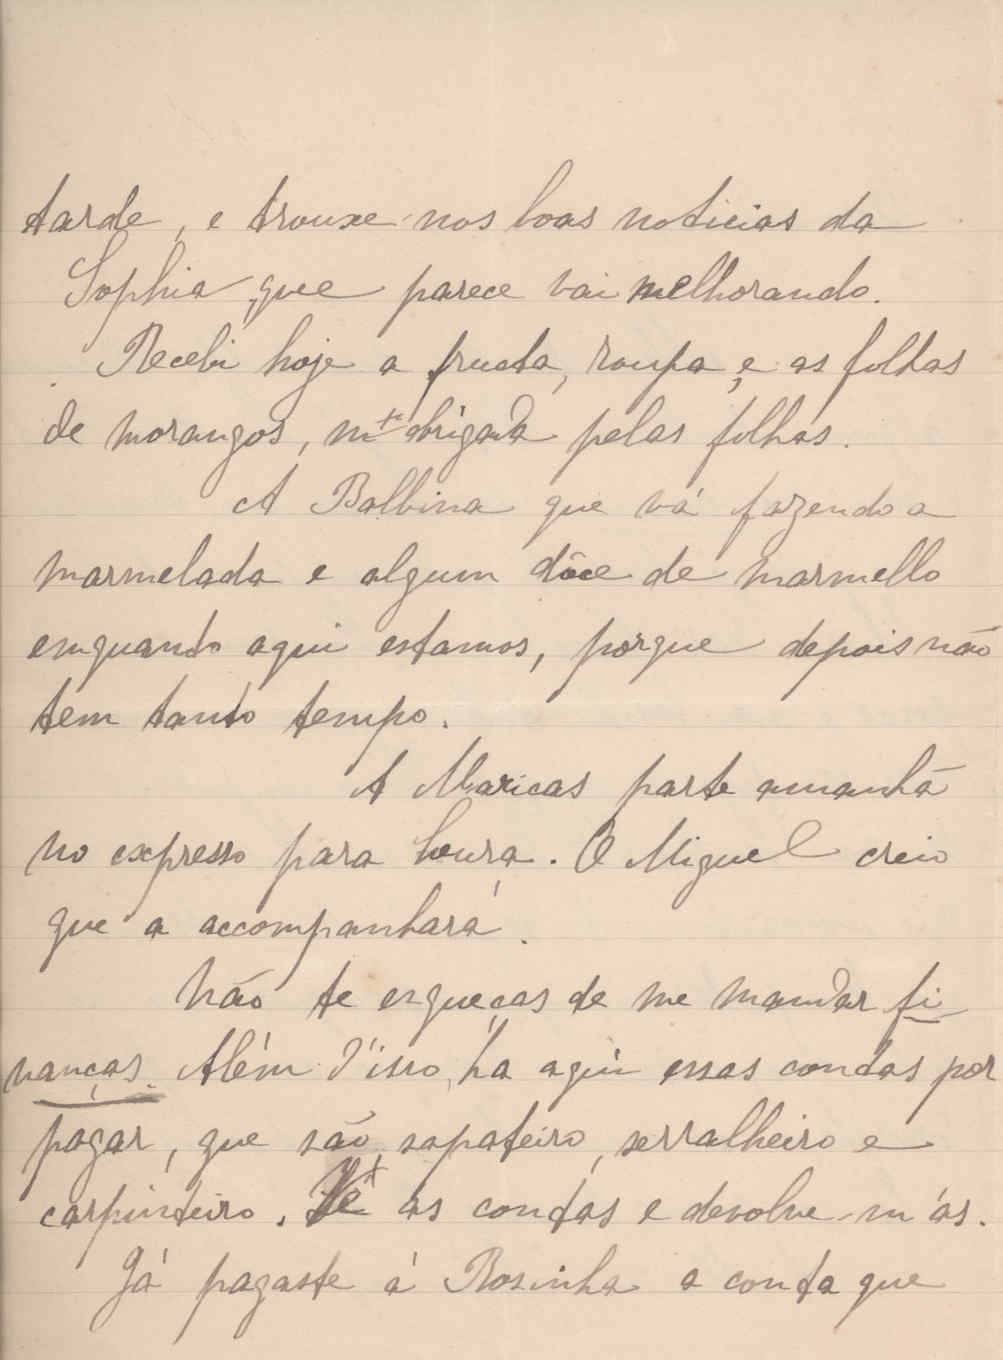 tarde, e trouxe-nos boas noticias da
Sophia, que parece vai melhorando.
Recebi hoje a fructa, roupa, e as folhas
de morangos, mto obrigada pelas folhas.
A Balbina que vá fazendo a
marmelada e algum dôce de marmello
emquanto aqui estamos, porque depois não
tem tanto tempo.
A Maricas parte amanhã
no expresso para Moura. O Miguel creio
que a accompanhará.
Não te esqueças de me mandar fi-
nanças. Além d'isso, ha aqui essas contas por
pagar, que são, sapateiro, serralheiro e
carpinteiro. Vê as contas e devolve-m'ás.
Já pagaste á Rosinha a conta que